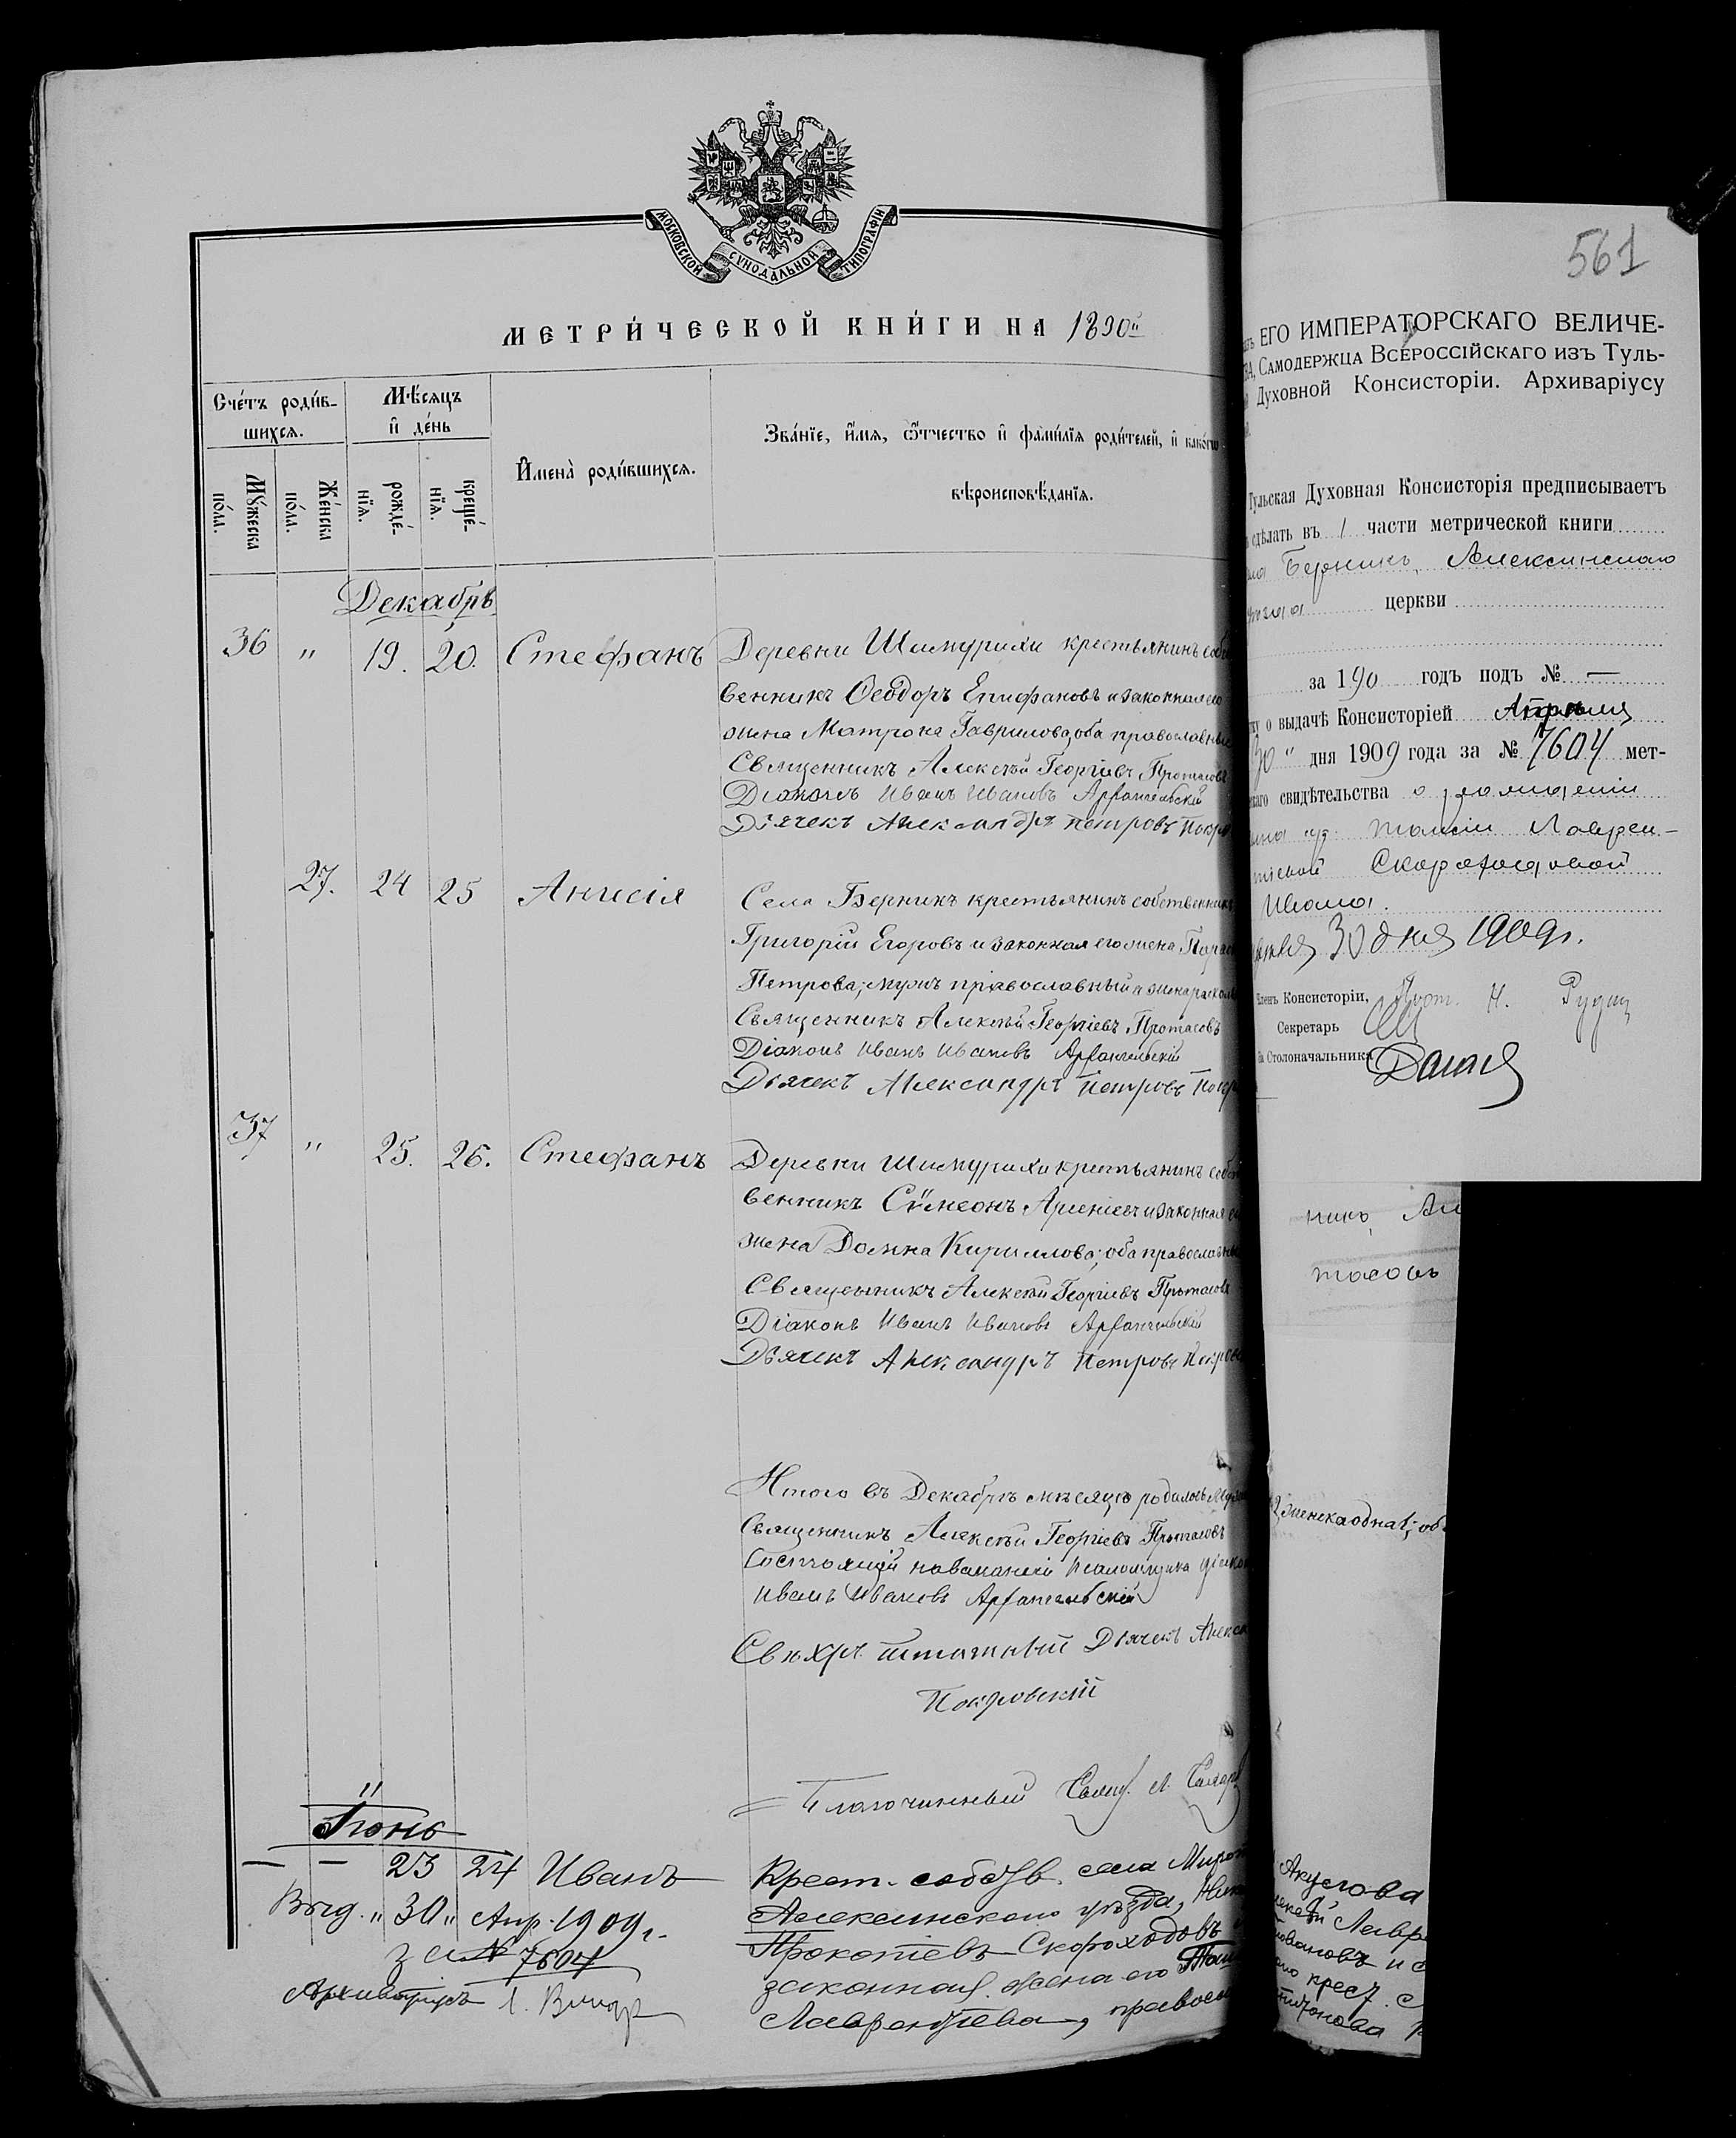 МОСКОВСКОЙ СУНОДАЛЬНОЙ ТИПОГРАФІИ
МЕТРИ́ЧЕСКОЙ КНИ́ГИ НА 1890й
Сче́тъ роди́в-
шихся.
Мѣ́сяцъ
и де́нь
И҆мена̀ роди́вшихся.
Зва́нїе, и҆́мя, ѻ҆́тчество и҆ фами́лїя роди́телей, и҆ како́гѡ
вѣроисповѣ́данїя.
Мꙋ́жеска
по́ла.
Же́нска
по́ла.
рожде́-
нїя.
креще́-
нїя.
Декабрь
36 " 19. 20. Стефанъ
Деревни Шимурихи крестьянинъ соб
венникъ Ѳеодоръ Епифановъ и законная его
жена Матрона Гаврилова, оба православные
Священникъ Алексѣй Георгіевъ Протасовъ
Діаконъ Иванъ Ивановъ Архангельскій
Дьячекъ Александръ Петровъ Покр
27. 24 25 Анисія
Села Берникъ крестьянинъ собственникъ
Григорій Егоровъ и законная его жена
Петрова; мужъ православный а жена раскол
Священникъ Алексѣй Георгіевъ Протасовъ
Діаконъ Иванъ Ивановъ Архангельскій
Дьячекъ Александръ Петровъ Покр
37 " 25. 26. Стефанъ
Деревни Шимурихи крестьянинъ соб
венникъ Сѵмеонъ Арсеніевъ и законная
жена Домна Кириллова; оба православные
Священникъ Алексѣй Георгіевъ Протасовъ
Діаконъ Иванъ Ивановъ Архангельскій
Дьячекъ Александръ Петровъ Покров
Итого въ Декабрѣ мѣсяцѣ родилось
женска одна; об
Священникъ Алексѣй Георгіевъ Протасовъ
Состоящій на вакансіи псаломщика діакон
Иванъ Ивановъ Архангельскій
Свѣхръ штатный Дьячекъ Алекс
Покровскій
Благочинный Свящ.
Іюнь
— — 23 24 Иванъ
Крест. собств. села
Алексинскаго уѣзда,
Прокопіевъ Скороходовъ
законная жена его
Лаврентіева, правосл
Выд. " 30 " Апр. 1909 г.
за № 7604
Архиваріусъ
561
ЕГО ИМПЕРАТОРСКАГО ВЕЛИЧЕ-
ВА, САМОДЕРЖЦА ВСЕРОССІЙСКАГО изъ Туль-
Духовной Консисторіи. Архиваріусу
Тульская Духовная Консисторія предписываетъ
сдѣлать въ 1 части метрической книги
Берникъ, Алексинскаго
уѣзда церкви
за 1890 годъ подъ № —
о выдачѣ Консисторіей Апрѣля
30 " дня 1909 года за № 7604 мет-
скаго свидѣтельства о рожденіи
Лаврен-
тіевой Скороходовой
Ивана.
30 дня 1909 г.
Членъ Консисторіи, Прот. Н.
Секретарь
За Столоначальника
никъ, Ал
тасовъ
Акулова
Лавр
ивановъ и
крест.